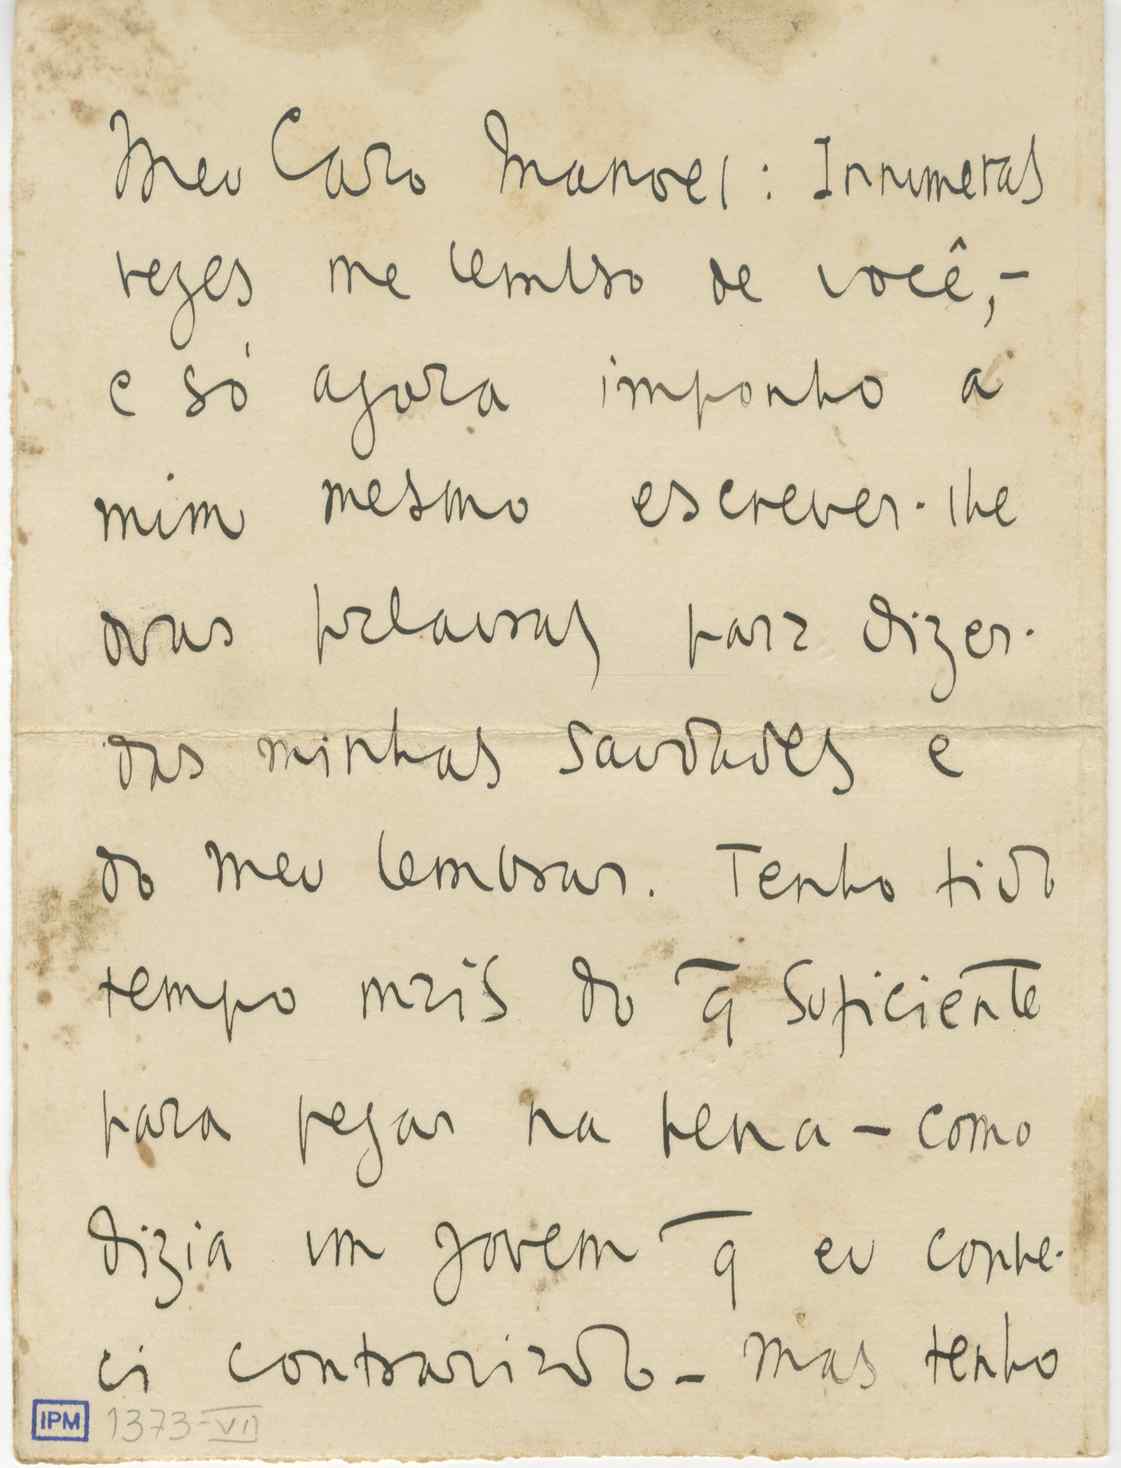 Meu Caro Manoel: Innumeras
vezes me lembro de você,-
e só agora imponho a
mim mesmo escrever-lhe
duas palavras para dizer-
das minhas saudades e
do meu lembrar. Tenho tido
tempo mais do q̄ suficiente
para pegar na pena – como
dizia um jovem q̄ eu conhe-
ci contrariado – mas tenho
IPM 1373-VII